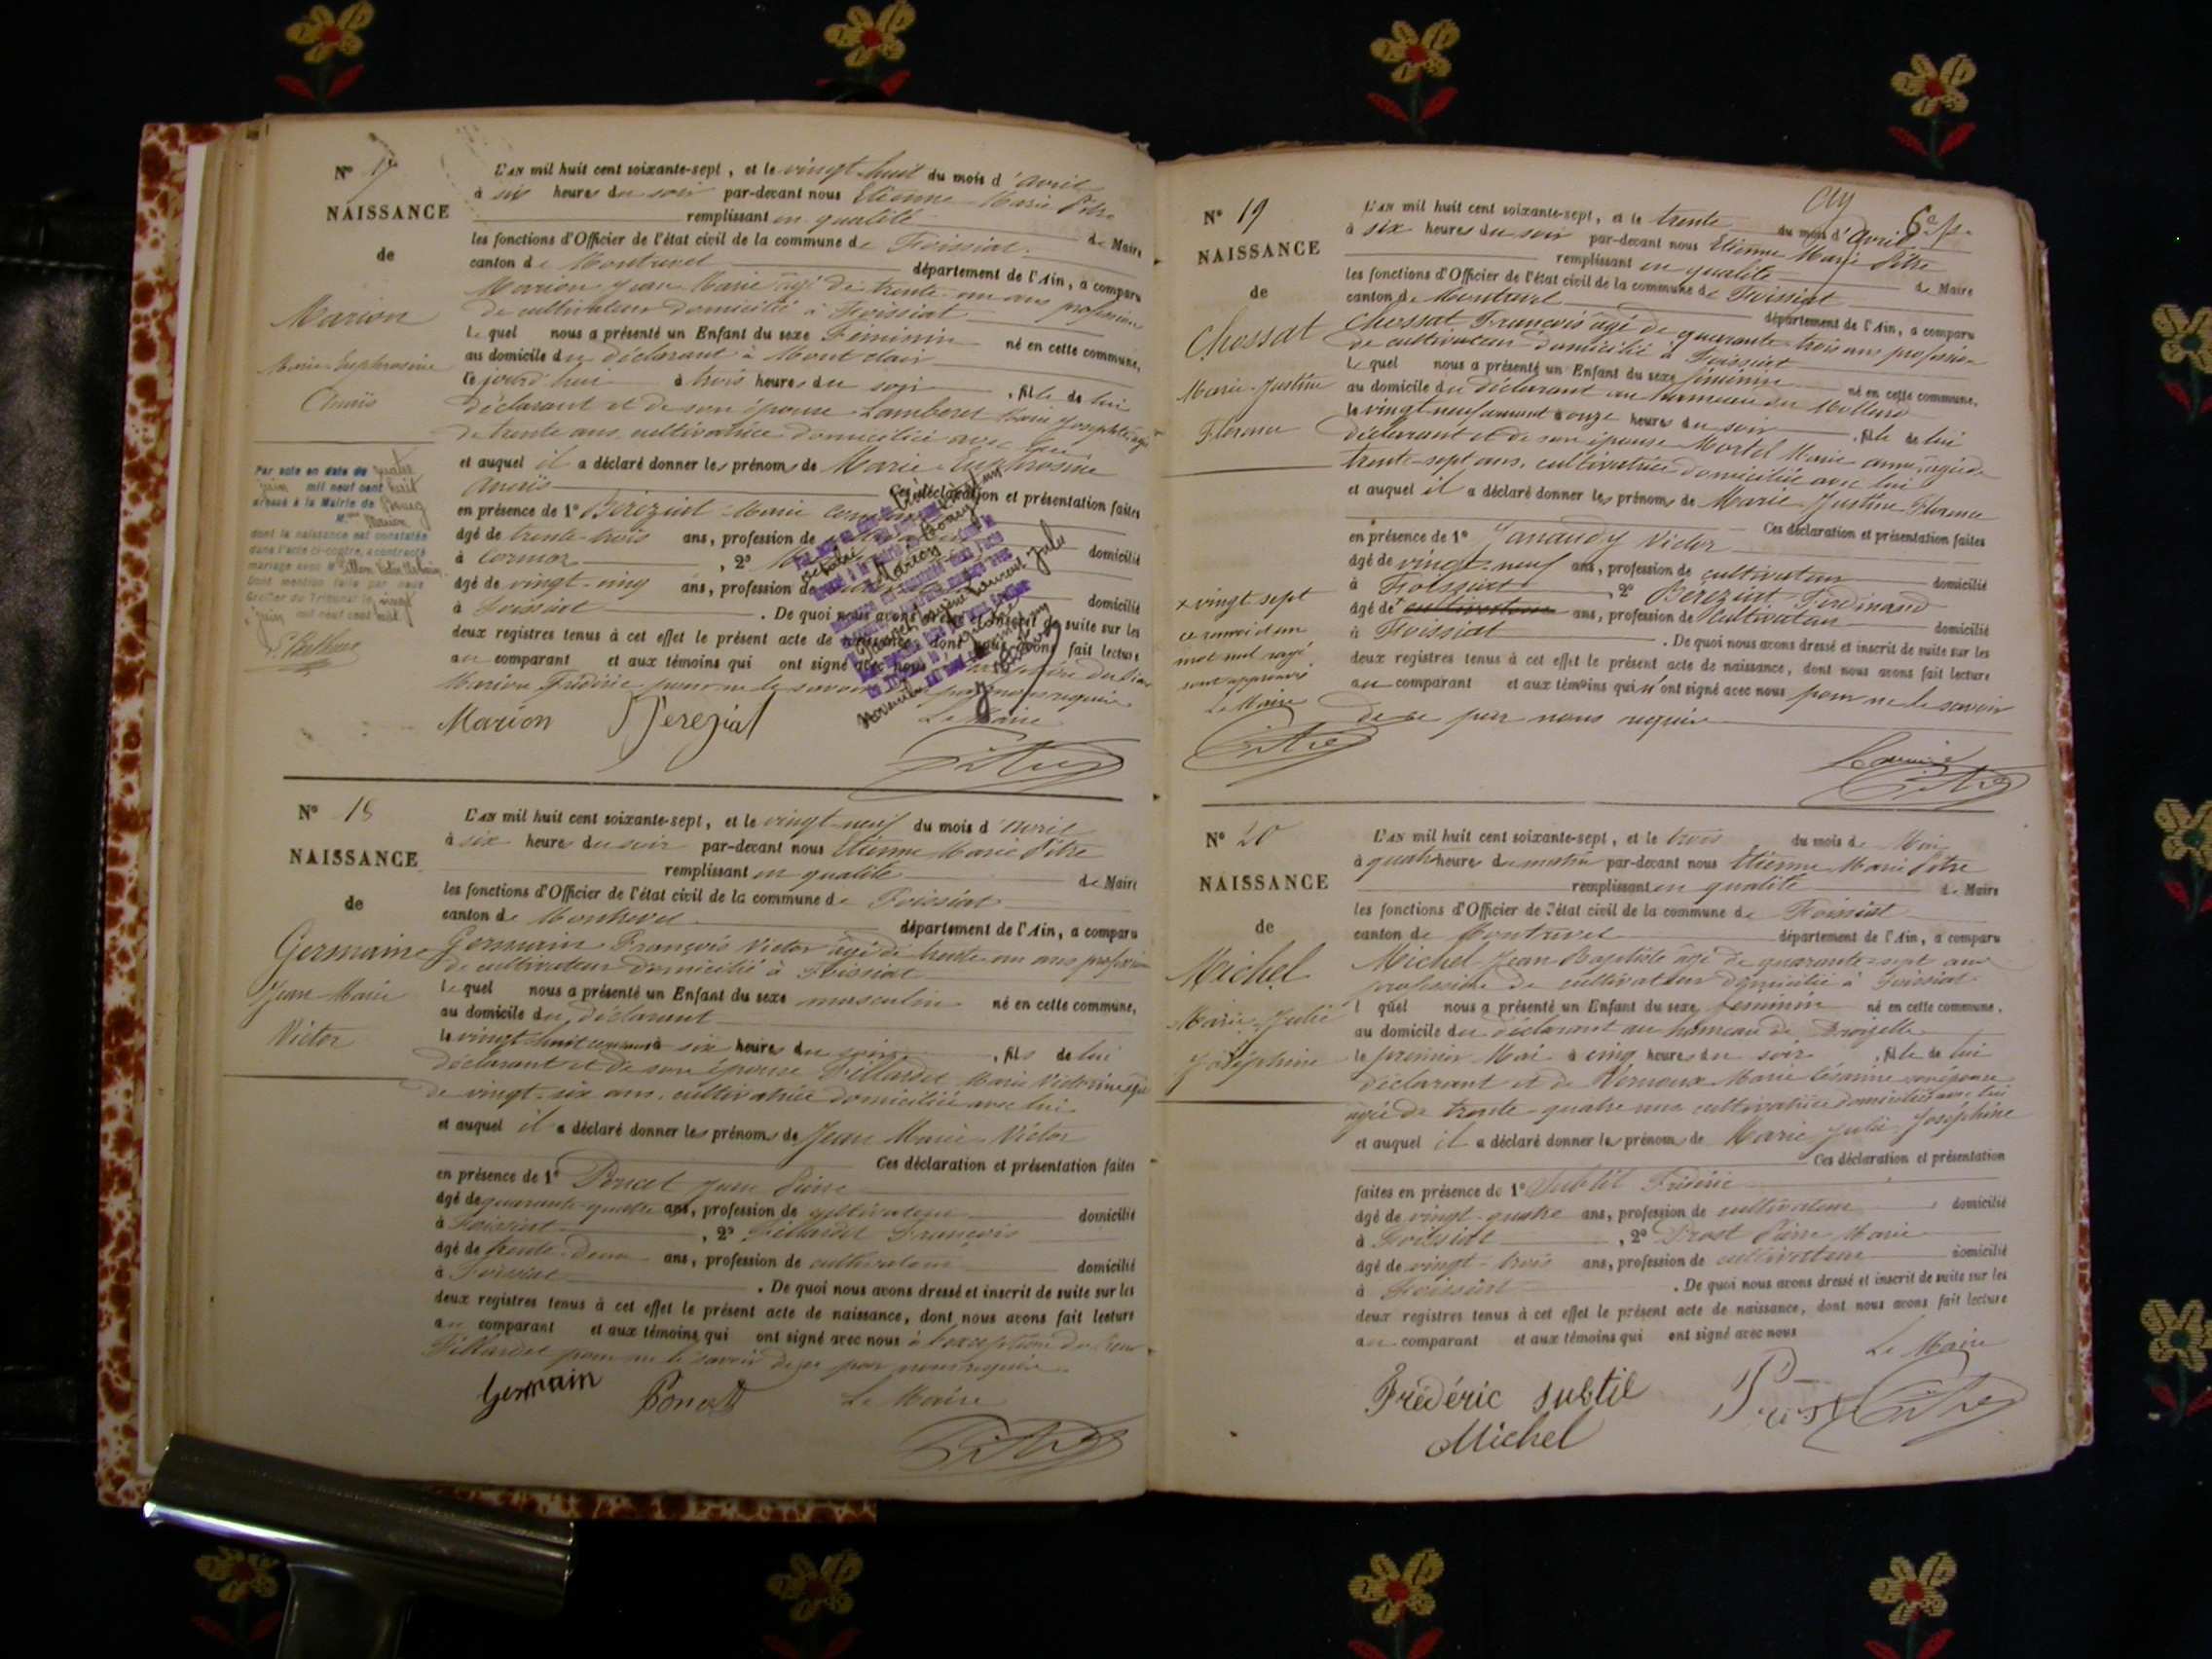 N° 17
NAISSANCE
de
Marion
Marie Euphrosine
Anaïs
L'AN mil huit cent soixante-sept, et le vingt-huit du mois d'avril
à six heures du soir par-devant nous Etienne Marie Pitre
remplissant en qualité de Maire
les fonctions d'Officier de l'état civil de la commune de Foissiat
canton de Montrevel département de l'Ain, a comparu
Marion Jean Marie âgé de trente-un ans profession
de cultivateur domicilié à Foissiat
lequel nous a présenté un Enfant du sexe Féminin né en cette commune,
au domicile du déclarant à Mont clair
ce jourd'hui à trois heures du soir, fille de lui
déclarant et de son épouse Lamberet Marie Josephte, âgée
de trente ans, cultivatrice domiciliée avec lui
et auquel il a déclaré donner les prénoms de Marie Euphrosine
Anaïs Ces déclaration et présentation faites
en présence de 1° Bereziat Marie
âgé de trente-trois ans, profession de domicilié
à Cormoz, 2°
âgé de vingt-cinq ans, profession de domicilié
à Foissiat. De quoi nous avons dressé et inscrit de suite sur les
deux registres tenus à cet effet le présent acte de naissance, dont nous avons fait lecture
au comparant et aux témoins qui ont signé avec nous
Marion Frédéric pour ne le savoir par nous requis
Le Maire
Marion Berezial
Pitre
Par acte en date du quatre
juin mil neuf cent huit
dressé à la Mairie de Bourg
M. Marion
dont la naissance est constatée
dans l'acte ci-contre, a contracté
mariage avec M.
Dont mention faite par nous
Greffier du Tribunal le vingt
juin mil neuf cent huit
N° 18
NAISSANCE
de
Germain
Jean Marie
Victor
L'AN mil huit cent soixante-sept, et le vingt-neuf du mois d'avril
à six heures du soir par-devant nous Etienne Marie Pitre
remplissant en qualité de Maire
les fonctions d'Officier de l'état civil de la commune de Foissiat
canton de Montrevel département de l'Ain, a comparu
Germain François Victor âgé de trente-un ans profession
de cultivateur domicilié à Foissiat
lequel nous a présenté un Enfant du sexe masculin né en cette commune,
au domicile du déclarant
le vingt-huit courant à six heures du soir, fils de lui
déclarant et de son épouse Tillardet Marie Victorine âgée
de vingt-six ans, cultivatrice domiciliée avec lui
et auquel il a déclaré donner les prénoms de Jean Marie Victor
Ces déclaration et présentation faites
en présence de 1° Poncet Jean Pierre
âgé de quarante-quatre ans, profession de cultivateur domicilié
à Foissiat, 2° Tillardet François
âgé de trente-deux ans, profession de cultivateur domicilié
à Foissiat. De quoi nous avons dressé et inscrit de suite sur les
deux registres tenus à cet effet le présent acte de naissance, dont nous avons fait lecture
au comparant et aux témoins qui ont signé avec nous à l'exception du Sieur
Tillardet pour ne le savoir de ce par nous requis
Germain Poncet Le Maire
Pitre
6e f.
N° 19
NAISSANCE
de
Chossat
Marie Justine
Florence
L'AN mil huit cent soixante-sept, et le trente du mois d'avril
à six heures du soir par-devant nous Etienne Marie Pitre
remplissant en qualité de Maire
les fonctions d'Officier de l'état civil de la commune de Foissiat
canton de Montrevel département de l'Ain, a comparu
Chossat François âgé de quarante-trois ans profession
de cultivateur domicilié à Foissiat
lequel nous a présenté un Enfant du sexe féminin né en cette commune,
au domicile du déclarant au hameau du Mollard
le vingt-neuf courant à onze heures du soir, fille de lui
déclarant et de son épouse Mortel Marie Anne, âgée de
trente-sept ans, cultivatrice domiciliée avec lui
et auquel il a déclaré donner les prénoms de Marie Justine Florence
Ces déclaration et présentation faites
en présence de 1° Janaudy Victor
âgé de vingt-neuf ans, profession de cultivateur domicilié
à Foissiat, 2° Bereziat Ferdinand
âgé de x cultivateur ans, profession de cultivateur domicilié
à Foissiat. De quoi nous avons dressé et inscrit de suite sur les
deux registres tenus à cet effet le présent acte de naissance, dont nous avons fait lecture
au comparant et aux témoins qui n'ont signé avec nous pour ne le savoir
de ce par nous requis
Le Maire
Pitre
x vingt sept
ce renvoi et un
mot nul rayé
sont approuvés
Le Maire
Pitre
N° 20
NAISSANCE
de
Michel
Marie Julie
Joséphine
L'AN mil huit cent soixante-sept, et le trois du mois de Mai
à quatre heures du matin par-devant nous Etienne Marie Pitre
remplissant en qualité de Maire
les fonctions d'Officier de l'état civil de la commune de Foissiat
canton de Montrevel département de l'Ain, a comparu
Michel Jean Baptiste âgé de quarante-sept ans
profession de cultivateur domicilié à Foissiat
l quel nous a présenté un Enfant du sexe féminin né en cette commune,
au domicile du déclarant au hameau de
le premier Mai à cinq heures du soir, fille de lui
déclarant et de Vernoux Marie Césarine son épouse
âgée de trente-quatre ans cultivatrice domiciliée avec lui
et auquel il a déclaré donner les prénoms de Marie Julie Joséphine
Ces déclaration et présentation
faites en présence de 1° Subtil Frédéric
âgé de vingt-quatre ans, profession de cultivateur, domicilié
à Foissiat, 2° Prost Pierre Marie
âgé de vingt-trois ans, profession de cultivateur domicilié
à Foissiat. De quoi nous avons dressé et inscrit de suite sur les
deux registres tenus à cet effet le présent acte de naissance, dont nous avons fait lecture
au comparant et aux témoins qui ont signé avec nous
Le Maire
Frédéric Subtil Prost Pitre
Michel